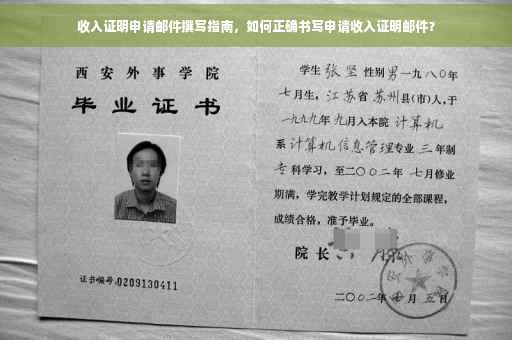 收入证明申请邮件撰写指南，如何正确书写申请收入证明邮件？
西安外事学院
毕业证书
证书编号:0209130411
学生张坚性别男一九八〇年
七月生，江苏省苏州县(市)人,于
一九九九年九月入本院计算机
系计算机信息管理专业三年制
专科学习，至二〇〇二年七月修业
期满，学完教学计划规定的全部课程，
成绩合格，准予毕业。
院长
二〇〇二年 月五日